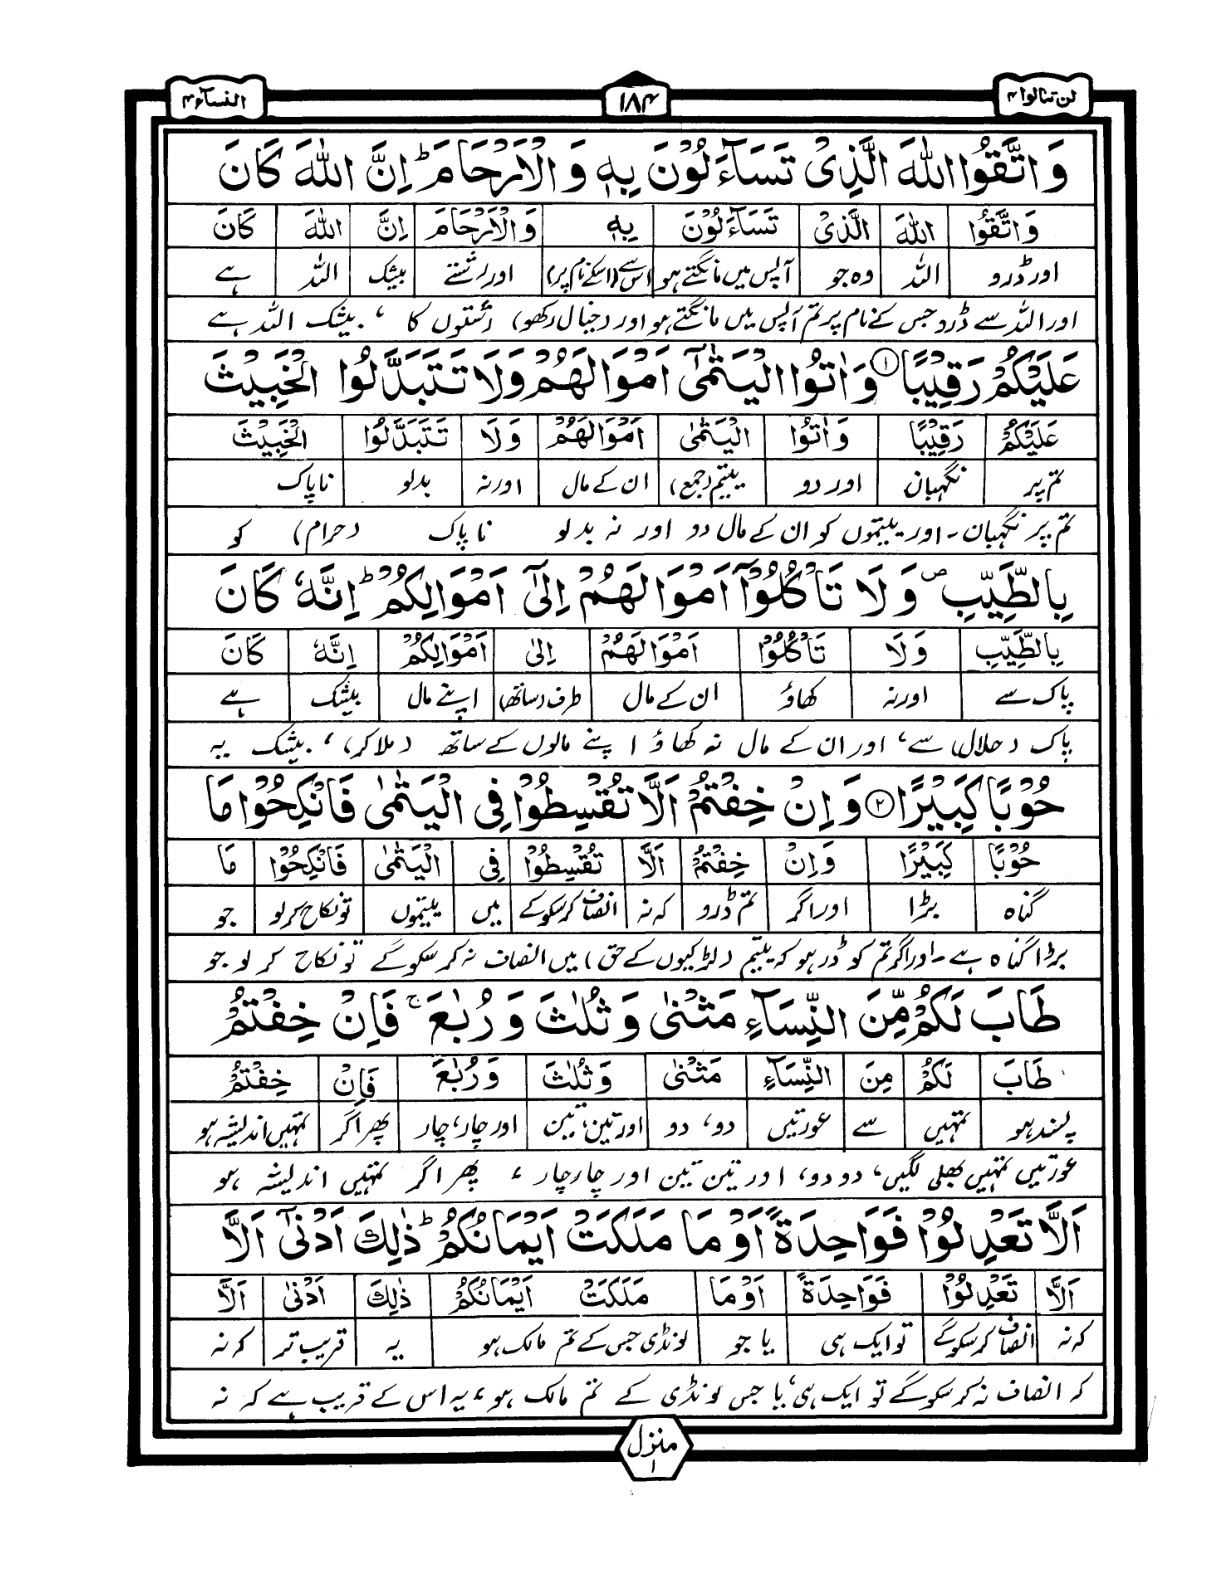 لن تنالوا ۴
۱۸۴
النساء ۴
وَاتَّقُوا اللّٰهَ الَّذِیْ تَسَآءَلُوْنَ بِهٖ وَالْاَرْحَامَ ؕ اِنَّ اللّٰهَ كَانَ
وَاتَّقُوا اللّٰهَ الَّذِیْ تَسَآءَلُوْنَ بِهٖ وَالْاَرْحَامَ اِنَّ اللّٰهَ كَانَ
اور ڈرو اللہ وہ جو آپس میں مانگتے ہو اس سے (اسکے نام پر) اور رشتے بیشک اللہ ہے
اور اللہ سے ڈرو جس کے نام پر تم آپس میں مانگتے ہو اور (خیال رکھو) رشتوں کا ، بیشک اللہ ہے
عَلَیْكُمْ رَقِیْبًا ۱ وَاٰتُوا الْیَتٰمٰۤی اَمْوَالَهُمْ وَلَا تَتَبَدَّلُوا الْخَبِیْثَ
عَلَیْكُمْ رَقِیْبًا وَاٰتُوا الْیَتٰمٰی اَمْوَالَهُمْ وَلَا تَتَبَدَّلُوا الْخَبِیْثَ
تم پر نگہبان اور دو یتیم (جمع) ان کے مال اور نہ بدلو ناپاک
تم پر نگہبان ۔ اور یتیموں کو ان کے مال دو اور نہ بدلو ناپاک (حرام) کو
بِالطَّیِّبِ ۪ وَلَا تَاْكُلُوْۤا اَمْوَالَهُمْ اِلٰۤی اَمْوَالِكُمْ ؕ اِنَّهٗ كَانَ
بِالطَّیِّبِ وَلَا تَاْكُلُوْا اَمْوَالَهُمْ اِلٰی اَمْوَالِكُمْ اِنَّهٗ كَانَ
پاک سے اور نہ کھاؤ ان کے مال طرف (ساتھ) اپنے مال بیشک ہے
پاک (حلال) سے ، اور ان کے مال نہ کھاؤ اپنے مالوں کے ساتھ (ملا کر) ، بیشک یہ
حُوْبًا كَبِیْرًا ۲ وَاِنْ خِفْتُمْ اَلَّا تُقْسِطُوْا فِی الْیَتٰمٰی فَانْكِحُوْا مَا
حُوْبًا كَبِیْرًا وَاِنْ خِفْتُمْ اَلَّا تُقْسِطُوْا فِی الْیَتٰمٰی فَانْكِحُوْا مَا
گناہ بڑا اور اگر تم ڈرو کہ نہ انصاف کر سکو گے میں یتیموں تو نکاح کر لو جو
بڑا گناہ ہے ۔ اور اگر تم کو ڈر ہو کہ یتیم (لڑکیوں کے حق) میں انصاف نہ کر سکو گے تو نکاح کر لو جو
طَابَ لَكُمْ مِّنَ النِّسَآءِ مَثْنٰی وَثُلٰثَ وَرُبٰعَ ۚ فَاِنْ خِفْتُمْ
طَابَ لَكُمْ مِنَ النِّسَآءِ مَثْنٰی وَثُلٰثَ وَرُبٰعَ فَاِنْ خِفْتُمْ
پسند ہو تمہیں سے عورتیں دو، دو اور تین، تین اور چار، چار پھر اگر تمہیں اندیشہ ہو
عورتیں تمہیں بھلی لگیں ، دو دو ، اور تین تین اور چار چار ، پھر اگر تمہیں اندیشہ ہو
اَلَّا تَعْدِلُوْا فَوَاحِدَةً اَوْ مَا مَلَكَتْ اَیْمَانُكُمْ ؕ ذٰلِكَ اَدْنٰۤی اَلَّا
اَلَّا تَعْدِلُوْا فَوَاحِدَةً اَوْ مَا مَلَكَتْ اَیْمَانُكُمْ ذٰلِكَ اَدْنٰی اَلَّا
کہ نہ انصاف کر سکو گے تو ایک ہی یا جو لونڈی جس کے تم مالک ہو یہ قریب تر کہ نہ
کہ انصاف نہ کر سکو گے تو ایک ہی ، یا جس لونڈی کے تم مالک ہو ، یہ اس کے قریب ہے کہ نہ
منزل ۱